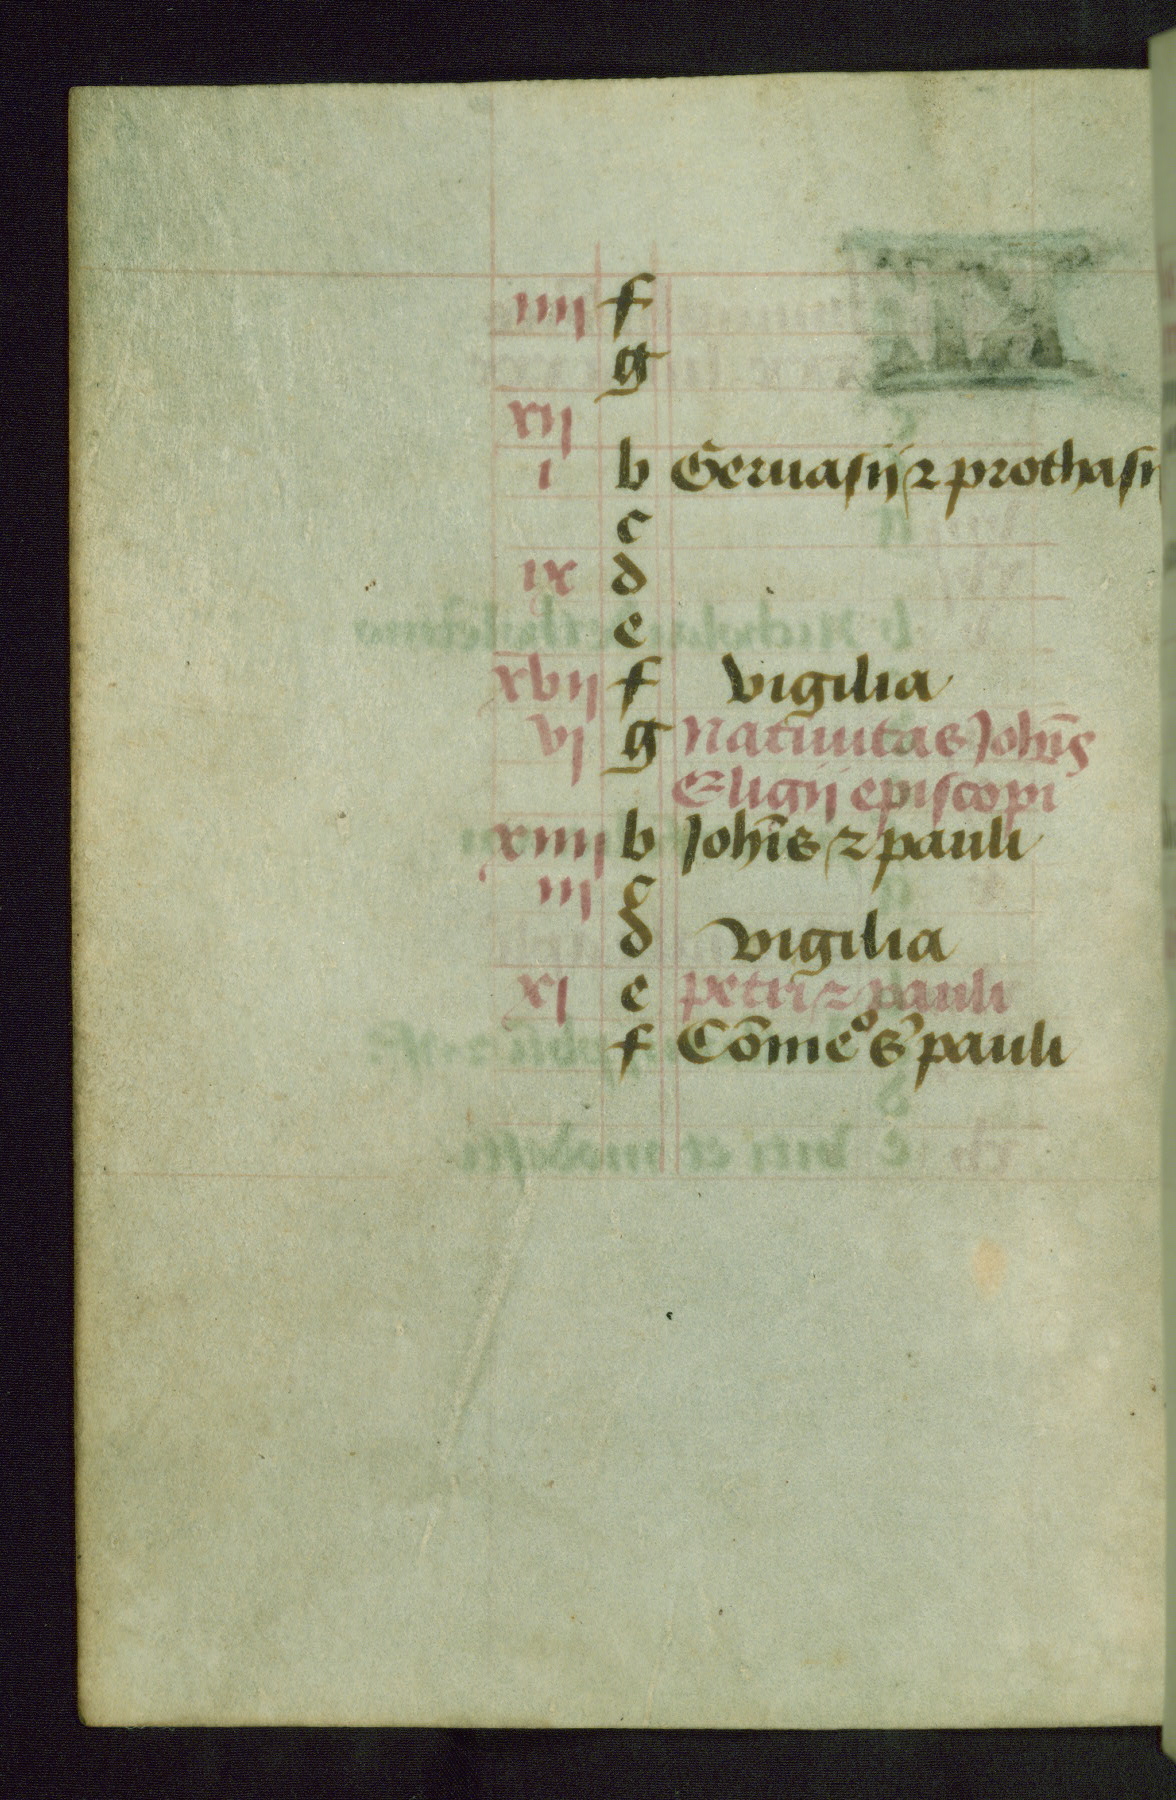 iiij f
g
xij
i b Geruasij ⁊ prothasij
c
ix d
e
xvij f vigilia
vj g Natiuitas Joh̄is
Eligij episcopi
xiiij b Joh̄is ⁊ pauli
iij c
d vigilia
xj e petri ⁊ pauli
f Cōmeͦ s̄ pauli